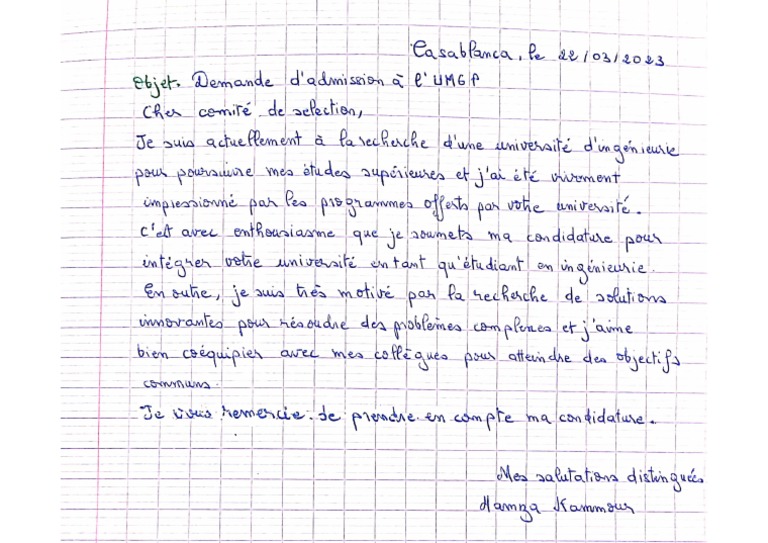 Casablanca, le 22/03/2023
Objet. Demande d'admission à l'UMGP
Cher comité de selection,
Je suis actuellement à la recherche d'une université d'ingénieurie
pour poursuivre mes études supérieures et j'ai été vivement
impressionné par les programmes offerts par votre université.
C'est avec enthousiasme que je soumets ma candidature pour
intégrer votre université en tant qu'étudiant en ingénieurie.
En outre, je suis très motivé par la recherche de solutions
innovantes pour résoudre des problèmes complexes et j'aime
bien coéquipier avec mes collègues pour atteindre des objectifs
communs.
Je vous remercie de prendre en compte ma candidature.
Mes salutations distinguées
Hamza Kammour